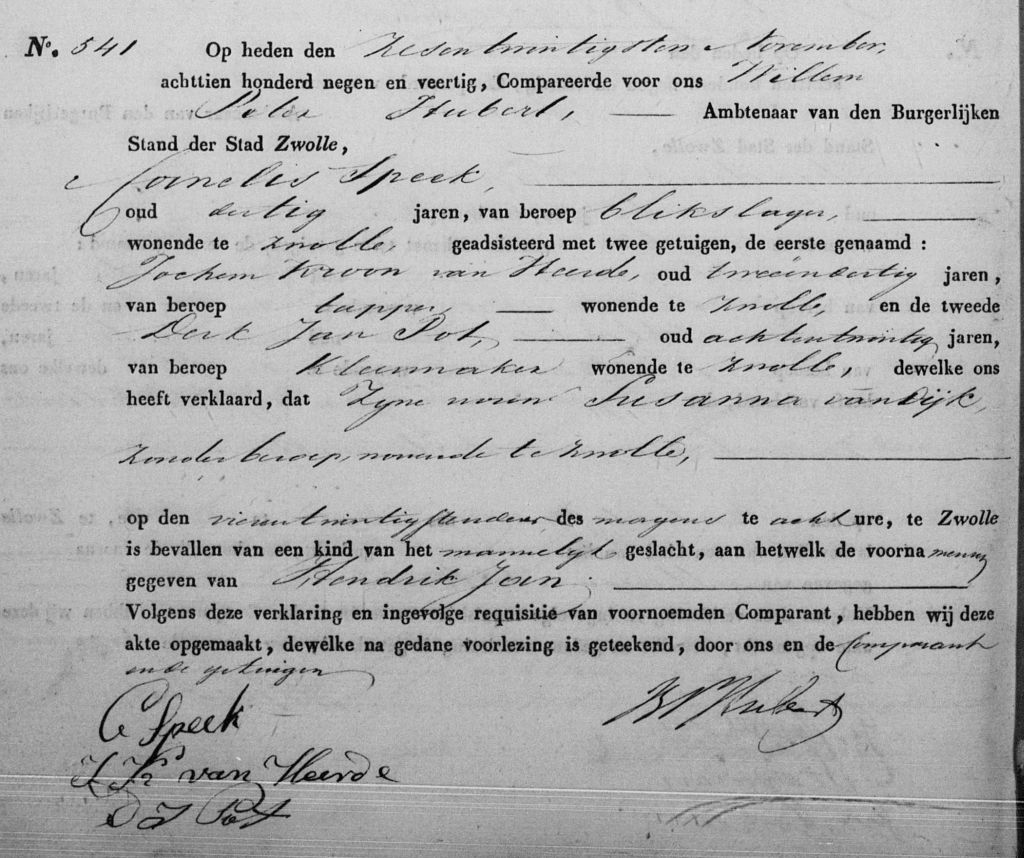 N.o 541 Op heden den Zesentwintigsten November,
achttien honderd negen en veertig, Compareerde voor ons Willem
Peter Hubert, Ambtenaar van den Burgerlijken
Stand der Stad Zwolle,
Cornelis Speek,
oud dertig jaren, van beroep blikslager,
wonende te Zwolle, geadsisteerd met twee getuigen, de eerste genaamd :
Jochem Kroon van Heerde, oud tweeendertig jaren,
van beroep tapper, wonende te Zwolle, en de tweede
Derk Jan Pot, oud achtentwintig jaren,
van beroep Kleermaker wonende te Zwolle, dewelke ons
heeft verklaard, dat Zyne vrouw Susanna van Dijk,
zonder beroep, wonende te Zwolle,
op den vierentwintigsten dezer des morgens te acht ure, te Zwolle
is bevallen van een kind van het mannelijk geslacht, aan hetwelk de voornamen
gegeven van Hendrik Jan.
Volgens deze verklaring en ingevolge requisitie van voornoemden Comparant, hebben wij deze
akte opgemaakt, dewelke na gedane voorlezing is geteekend, door ons en de Comparant
en de getuigen
C Speek
W P Hubert
J Kr van Heerde
D J Pot